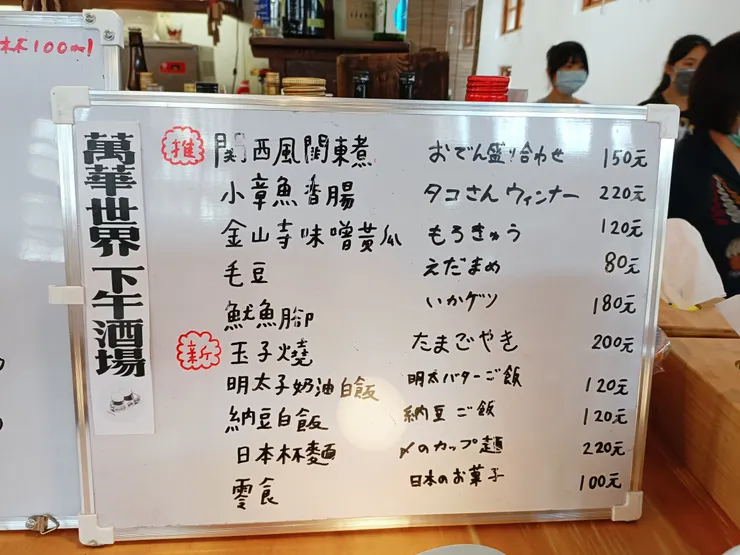 杯100元!
萬華世界 下午酒場
推 関西風関東煮 おでん盛り合わせ 150元
小章魚香腸 タコさんウィンナー 220元
金山寺味噌黃瓜 もろきゅう 120元
毛豆 えだまめ 80元
魷魚腳 いかゲソ 180元
新 玉子燒 たまごやき 200元
明太子奶油白飯 明太バターご飯 120元
納豆白飯 納豆ご飯 120元
日本杯麵 〆のカップ麺 220元
零食 日本のお菓子 100元